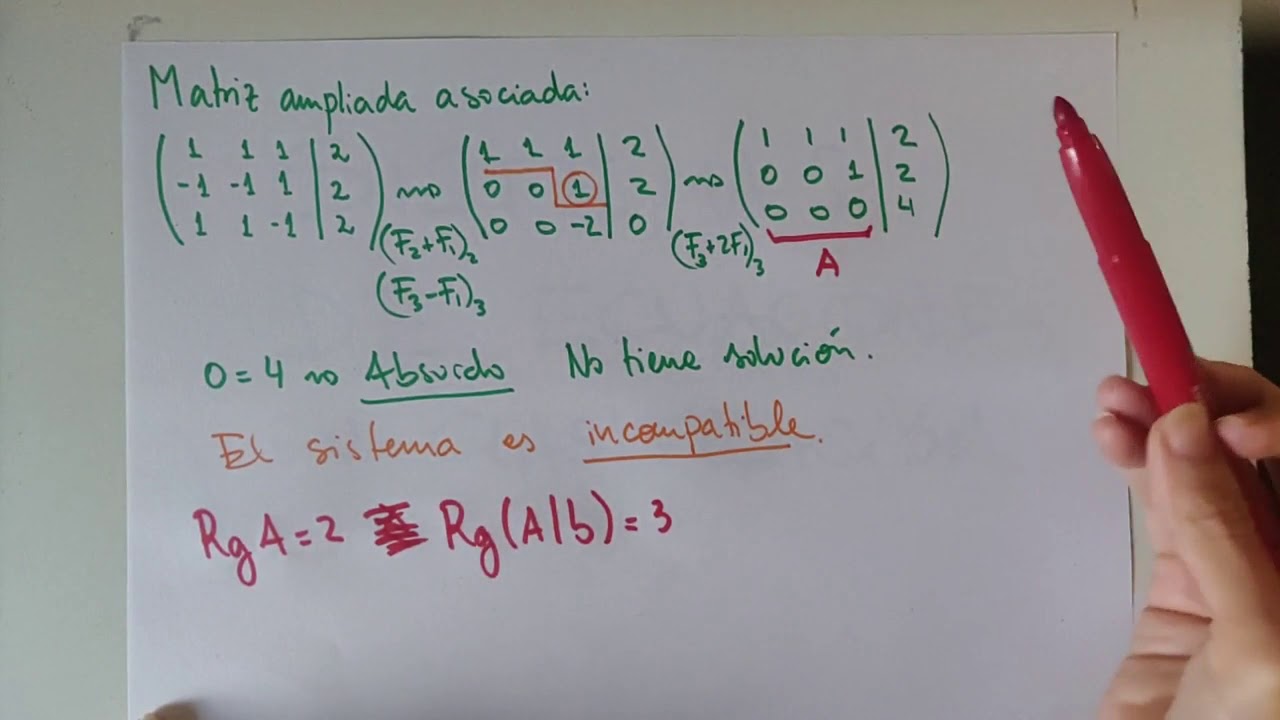 Matriz ampliada asociada:
1 1 1 | 2    1 1 1 | 2    1 1 1 | 2
-1 -1 1 | 2    0 0 1 | 2    0 0 1 | 2
1 1 -1 | 2    0 0 -2 | 0    0 0 0 | 4
(F₂+F₁)₂    (F₃+2F₁)₃    A
(F₃-F₁)₃
0=4 Absurdo No tiene solución.
El sistema es incompatible.
Rg A=2 Rg(A|b)=3